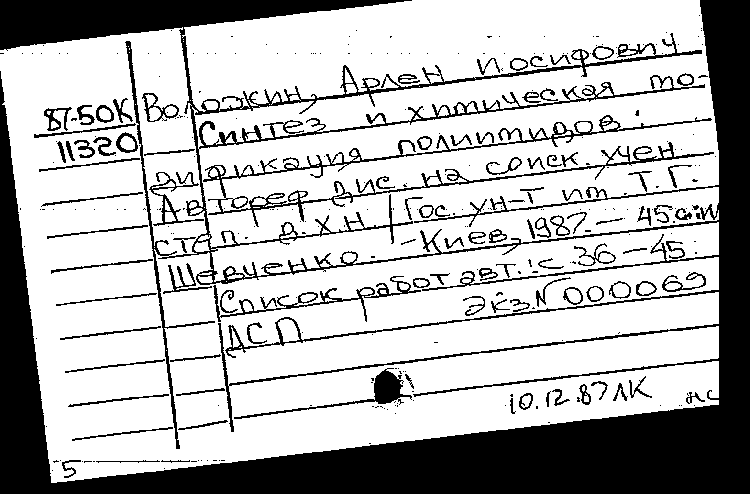 87-50К Воложин, Арлен Иосифович
11320 Синтез и химическая мо-
дификация полиимидов:
Автореф дис. на соиск. учен
степ. д.х.н / Гос. ун-т им. Т.Г.
Шевченко. - Киев, 1987. - 45 с.
Список работ авт.: с. 36-45.
ДСП Экз N 000069
10.12.87 ЛК
нс
5